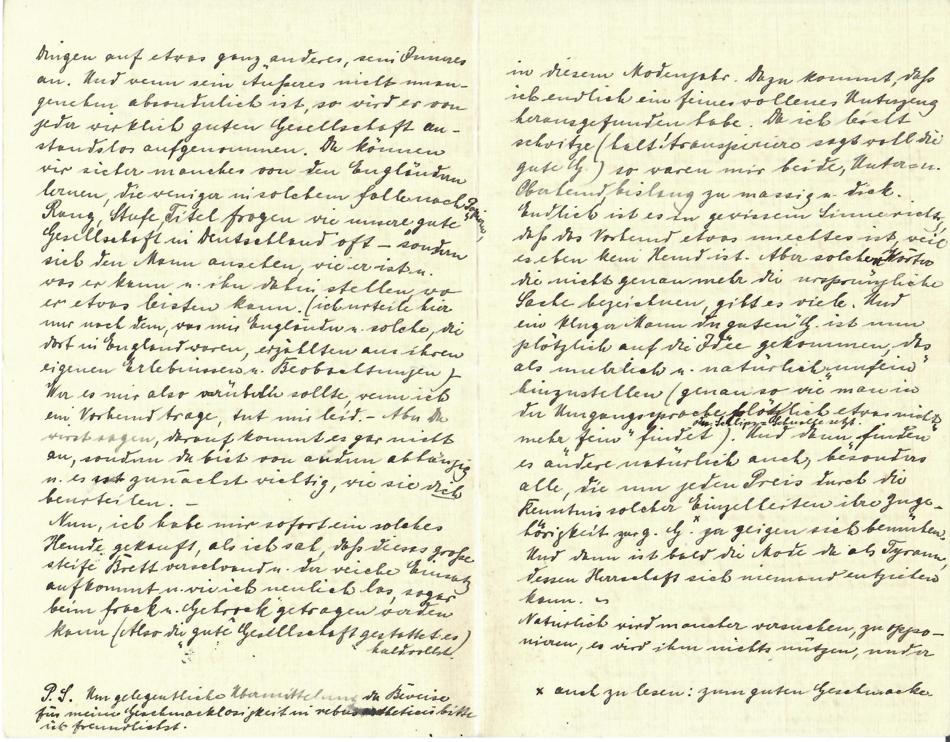 Dingen auf etwas ganz anderes, sein Inneres
an. Und wenn sein Äußeres nicht unan-
genehm absonderlich ist, so wird er von
jeder wirklich guten Gesellschaft an-
standslos aufgenommen. Da können
wir sicher manches von den Engländern
lernen, die weniger in solchem Falle nach
Rang, Stufe Titel fragen wie unsere gute
Gesellschaft in Deutschland oft – sondern
sich den Mann ansehen, wie er ist u.
was er kann u. ihn dahin stellen, wo
er etwas leisten kann. (ich urteile hier
nur nach dem, was mir Engländer u. solche, die
dort in England waren, erzählten aus ihren
eigenen Erlebnissen u. Beobachtungen)
Wer es mir also verübeln sollte, wenn ich
ein Vorhemd trage, tut mir leid. – Aber Du
wirst sagen, darauf kommt es gar nicht
an, sondern du bist von andern abhängig
u. es ist zunächst wichtig, wie sie dich
beurteilen. –
Nun, ich habe mir sofort ein solches
Hemde gekauft, als ich sah, daß dieses große
steife Brett verschwand u. der weiche Einsatz
aufkommt u. wie ich neulich las, sogar
beim Frack u. Gehrock getragen werden
kann (Also die gute Gesellschaft gestattet es)
huldvollst.
P.S. Um gelegentliche Übermittelung der Beweise
für meine Geschmacklosigkeit in rebus bitte
ich freundlichst.
in diesem Modenjahr. Dazu kommt, daß
ich endlich ein feines wollenes Unterzeug
herausgefunden habe. Da ich leicht
schwitze (halt! transpiriere sagt voll die
gute G.) so waren mir beide, Unter- u.
Oberhemd, bislang zu massig u. dick.
Endlich ist es in gewissem Sinne richtig,
daß das Vorhemd etwas unechtes ist, weil
es eben kein Hemd ist. Aber solcher Worte
die nicht genau mehr die ursprüngliche
Sache bezeichnen, gibt es viele. Und
ein kluger Mann der guten G. ist nun
plötzlich auf die Idee gekommen, das
als unehrlich u. natürlich "unfein"
hinzustellen (genau so, wie man in
der Umgangssprache plötzlich etwas nicht
mehr "fein" findet). Und dann "finden"
es andere natürlich auch, besonders
alle, die um jeden Preis durch die
Kenntnis solcher Einzelheiten ihre Zuge-
hörigkeit zur g. G.ˣ zu zeigen sich bemühen.
Und dann ist bald die Mode da als Tyrann,
dessen Herrschaft sich niemand entziehen
kann.
Natürlich wird mancher versuchen, zu oppo-
nieren, es wird ihm nichts nützen, und er
x auch zu lesen: zum guten Geschmacke